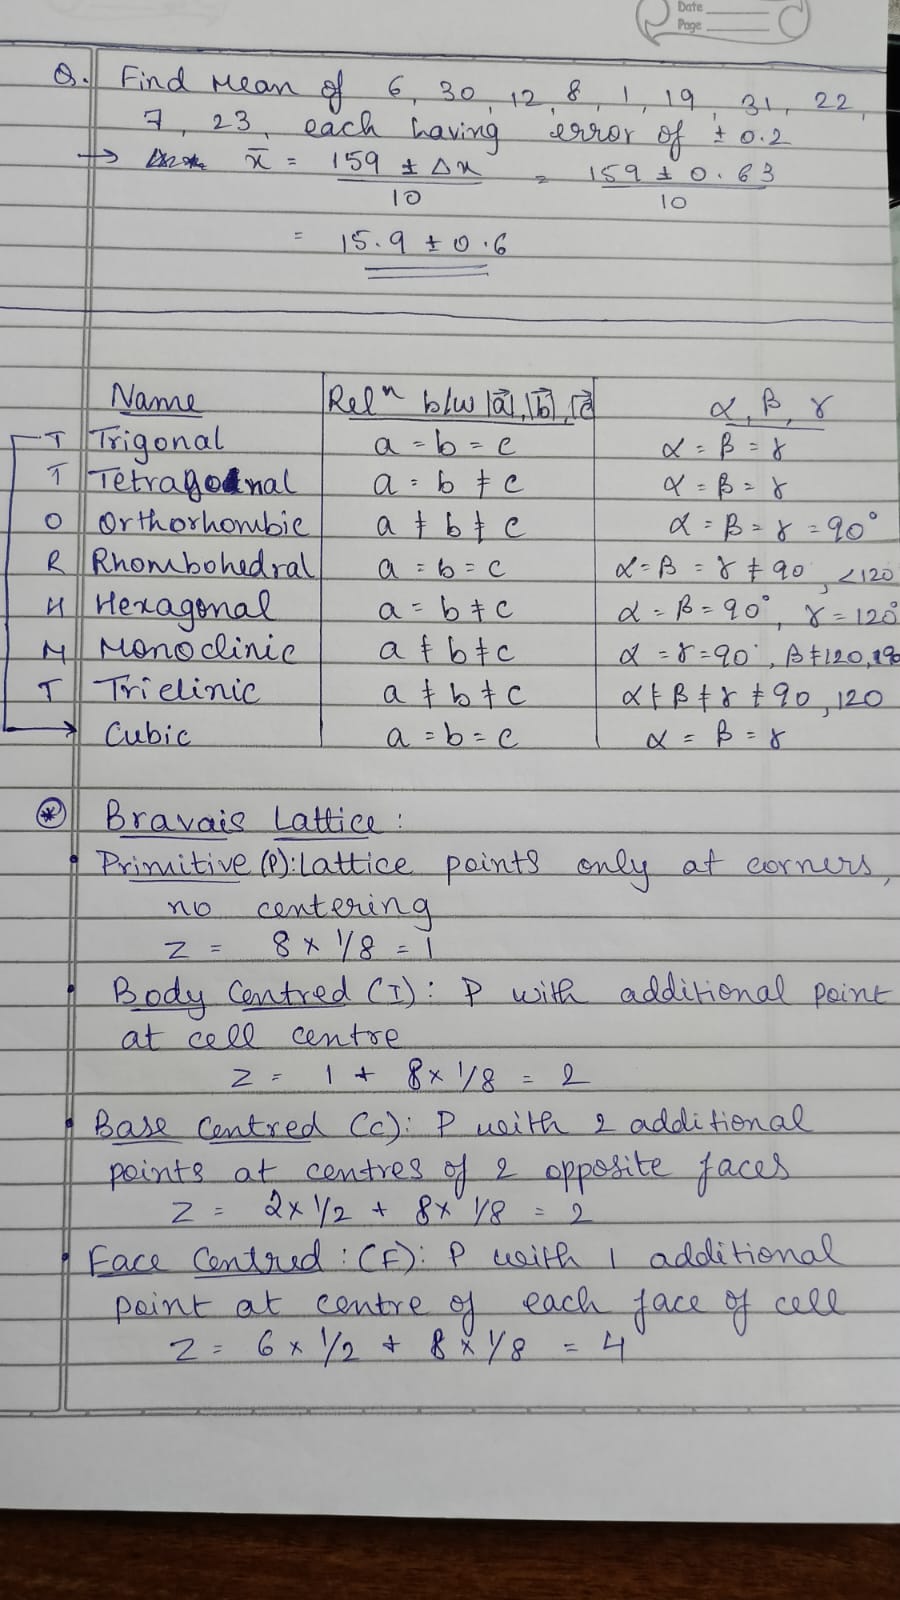 Date
Page
Q. Find Mean of 6, 30, 12, 8, 1, 19, 31, 22,
7, 23, each having error of ± 0.2
→ x̄ = (159 ± Δx)/10 = (159 ± 0.63)/10
= 15.9 ± 0.6
Name Relⁿ b/w |a⃗|, |b⃗|, |c⃗| α, β, γ
T Trigonal a = b = c α = β = γ
T Tetragonal a = b ≠ c α = β = γ
O Orthorhombic a ≠ b ≠ c α = β = γ = 90°
R Rhombohedral a = b = c α = β = γ ≠ 90, <120
H Hexagonal a = b ≠ c α = β = 90°, γ = 120°
M Monoclinic a ≠ b ≠ c α = γ = 90°, β ≠ 120, 90
T Triclinic a ≠ b ≠ c α ≠ β ≠ γ ≠ 90, 120
→ Cubic a = b = c α = β = γ
⊛ Bravais Lattice :
• Primitive (P): Lattice points only at corners,
no centering
Z = 8 × 1/8 = 1
• Body Centred (I): P with additional point
at cell centre
Z = 1 + 8 × 1/8 = 2
• Base Centred (C): P with 2 additional
points at centres of 2 opposite faces
Z = 2 × 1/2 + 8 × 1/8 = 2
• Face Centred : (F): P with 1 additional
point at centre of each face of cell
Z = 6 × 1/2 + 8 × 1/8 = 4